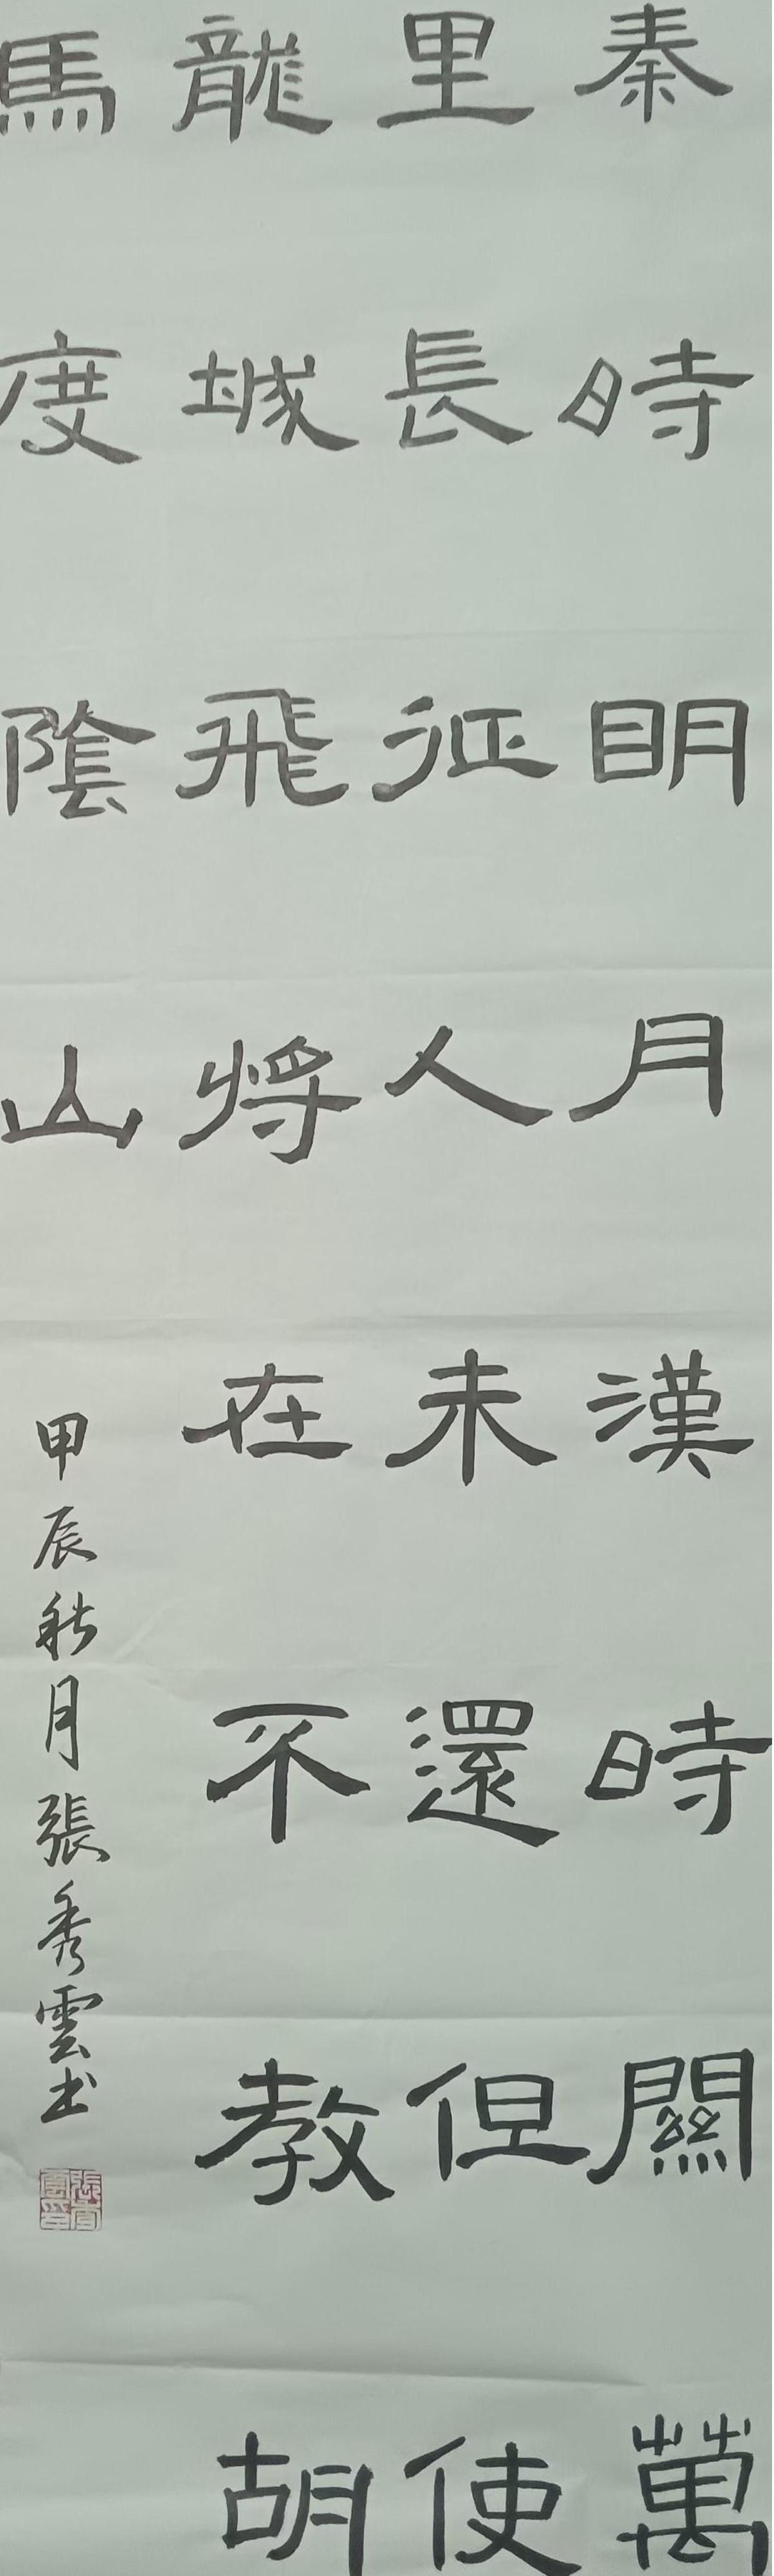 秦時明月漢時關萬
里長征人未還但使
龍城飛將在不教胡
馬度陰山
甲辰秋月張秀雲书
張秀雲印